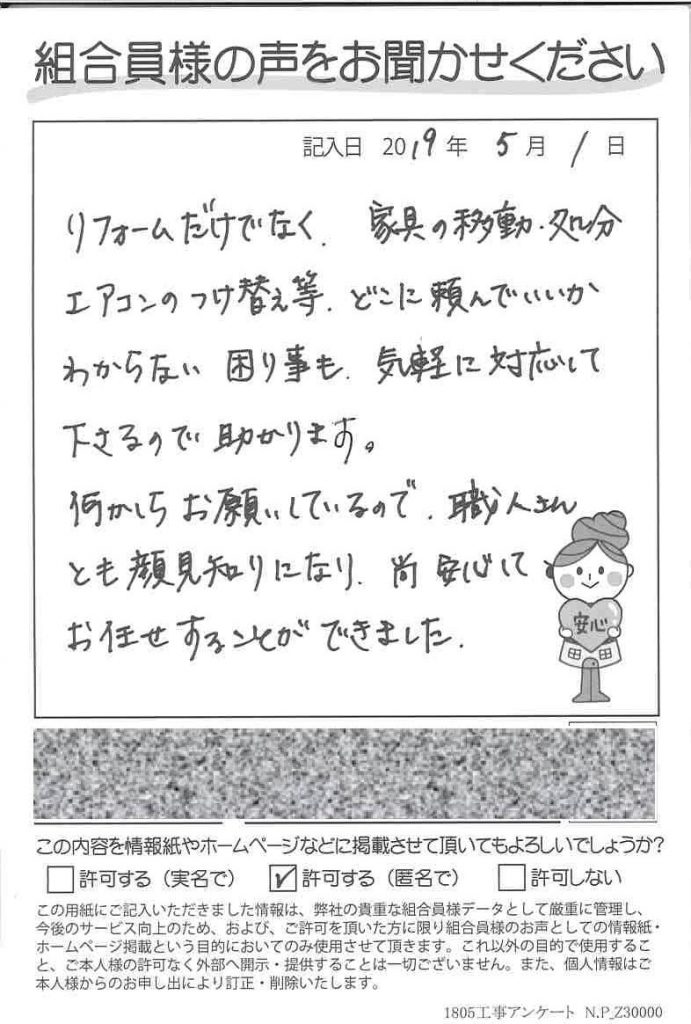 組合員様の声をお聞かせください
記入日 2019年 5月 1日
リフォームだけでなく、家具の移動・処分
エアコンのつけ替え等、どこに頼んでいいか
わからない困り事も、気軽に対応して
下さるので助かります。
何かしらお願いしているので、職人さん
とも顔見知りになり、尚安心して
お任せすることができました。
安心
この内容を情報紙やホームページなどに掲載させて頂いてもよろしいでしょうか?
□許可する(実名で) ☑許可する(匿名で) □許可しない
この用紙にご記入いただきました情報は、弊社の貴重な組合員様データとして厳重に管理し、
今後のサービス向上のため、および、ご許可を頂いた方に限り組合員様のお声としての情報紙・
ホームページ掲載という目的においてのみ使用させて頂きます。これ以外の目的で使用するこ
と、ご本人様の許可なく外部へ開示・提供することは一切ございません。また、個人情報はご
本人様からのお申し出により訂正・削除いたします。
1805工事アンケート N.P_Z30000